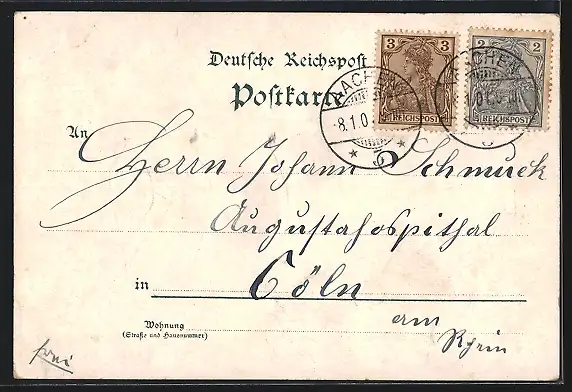 Deutsche Reichspost
Postkarte
3 3
REICHSPOST
2 2
REICHSPOST
AACHEN
8.1.0
5
AACHEN
An
Herrn Johann Schmuck
Augustahospithal
in Cöln
am
Rhein
Wohnung
(Straße und Hausnummer)